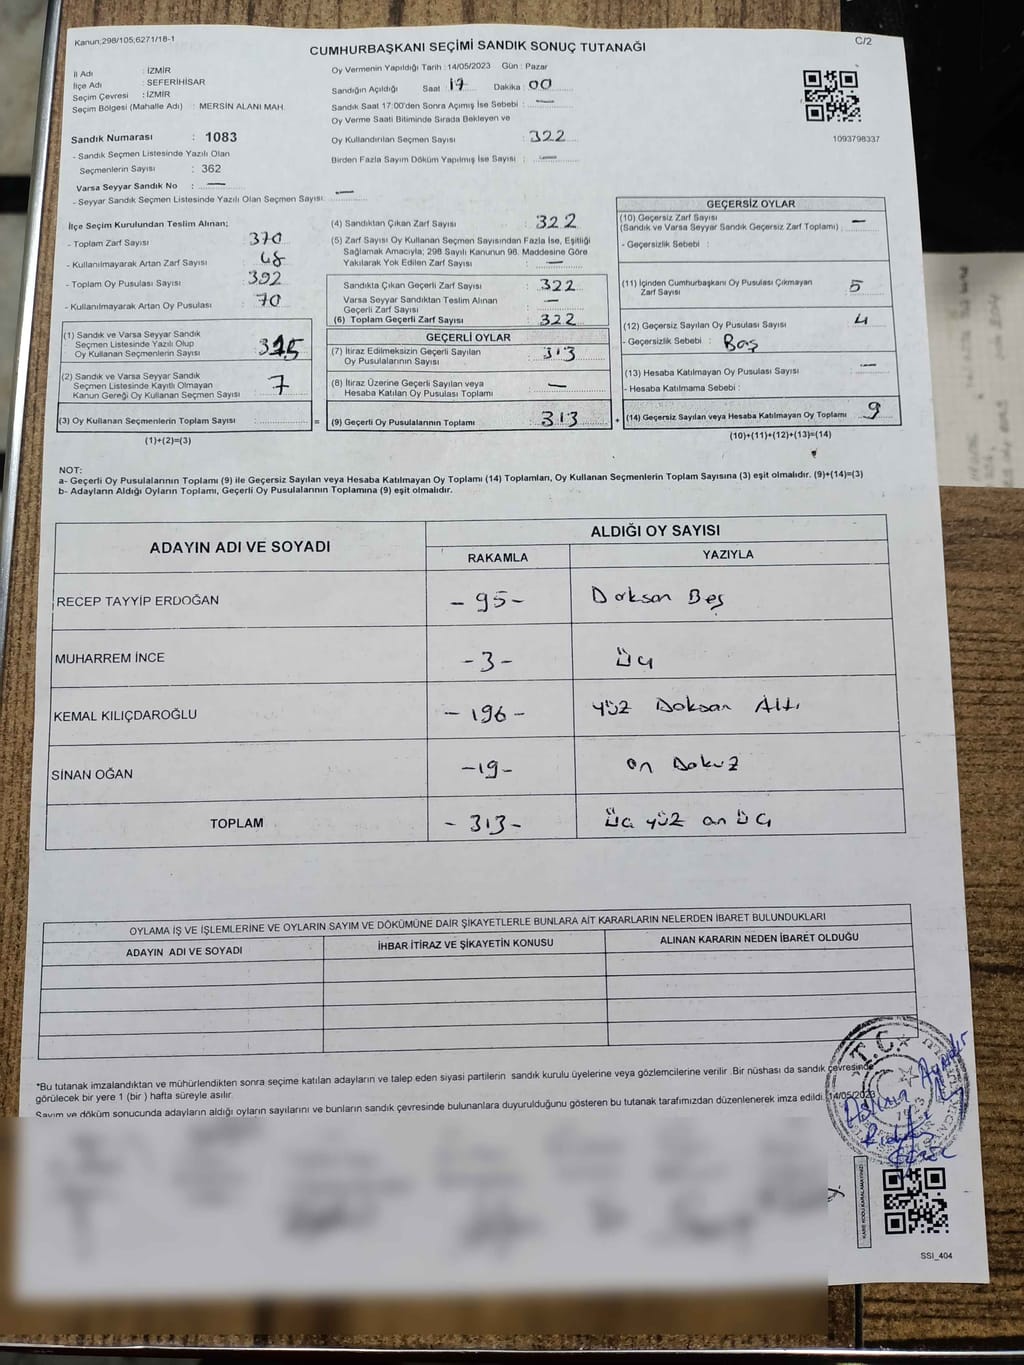 Kanun;298/105;6271/18-1
C/2
CUMHURBAŞKANI SEÇİMİ SANDIK SONUÇ TUTANAĞI
İl Adı : İZMİR
İlçe Adı : SEFERİHİSAR
Seçim Çevresi : İZMİR
Seçim Bölgesi (Mahalle Adı) : MERSİN ALANI MAH.
Sandık Numarası : 1083
- Sandık Seçmen Listesinde Yazılı Olan
Seçmenlerin Sayısı : 362
Varsa Seyyar Sandık No : —
- Seyyar Sandık Seçmen Listesinde Yazılı Olan Seçmen Sayısı: —
Oy Vermenin Yapıldığı Tarih : 14/05/2023 Gün : Pazar
Sandığın Açıldığı Saat : 17 Dakika : 00
Sandık Saat 17:00'den Sonra Açımış İse Sebebi : —
Oy Verme Saati Bitiminde Sırada Bekleyen ve
Oy Kullandırılan Seçmen Sayısı : 322
Birden Fazla Sayım Döküm Yapılmış İse Sayısı : —
1093798337
İlçe Seçim Kurulundan Teslim Alınan;
- Toplam Zarf Sayısı : 370
- Kullanılmayarak Artan Zarf Sayısı : 48
- Toplam Oy Pusulası Sayısı : 392
- Kullanılmayarak Artan Oy Pusulası : 70
(1) Sandık ve Varsa Seyyar Sandık
Seçmen Listesinde Yazılı Olup
Oy Kullanan Seçmenlerin Sayısı : 315
(2) Sandık ve Varsa Seyyar Sandık
Seçmen Listesinde Kayıtlı Olmayan
Kanun Gereği Oy Kullanan Seçmen Sayısı : 7
(3) Oy Kullanan Seçmenlerin Toplam Sayısı : =
(1)+(2)=(3)
(4) Sandıktan Çıkan Zarf Sayısı : 322
(5) Zarf Sayısı Oy Kullanan Seçmen Sayısından Fazla İse, Eşitliği
Sağlamak Amacıyla; 298 Sayılı Kanunun 98. Maddesine Göre
Yakılarak Yok Edilen Zarf Sayısı : —
Sandıkta Çıkan Geçerli Zarf Sayısı : 322
Varsa Seyyar Sandıktan Teslim Alınan
Geçerli Zarf Sayısı : —
(6) Toplam Geçerli Zarf Sayısı : 322
GEÇERLİ OYLAR
(7) İtiraz Edilmeksizin Geçerli Sayılan
Oy Pusulalarının Sayısı : 313
(8) İtiraz Üzerine Geçerli Sayılan veya
Hesaba Katılan Oy Pusulası Toplamı : —
(9) Geçerli Oy Pusulalarının Toplamı : 313 +
GEÇERSİZ OYLAR
(10) Geçersiz Zarf Sayısı
(Sandık ve Varsa Seyyar Sandık Geçersiz Zarf Toplamı) : —
- Geçersizlik Sebebi :
(11) İçinden Cumhurbaşkanı Oy Pusulası Çıkmayan
Zarf Sayısı : 5
(12) Geçersiz Sayılan Oy Pusulası Sayısı : 4
- Geçersizlik Sebebi : Boş
(13) Hesaba Katılmayan Oy Pusulası Sayısı : —
- Hesaba Katılmama Sebebi :
(14) Geçersiz Sayılan veya Hesaba Katılmayan Oy Toplamı : 9
(10)+(11)+(12)+(13)=(14)
NOT:
a- Geçerli Oy Pusulalarının Toplamı (9) ile Geçersiz Sayılan veya Hesaba Katılmayan Oy Toplamı (14) Toplamları, Oy Kullanan Seçmenlerin Toplam Sayısına (3) eşit olmalıdır. (9)+(14)=(3)
b- Adayların Aldığı Oyların Toplamı, Geçerli Oy Pusulalarının Toplamına (9) eşit olmalıdır.
ADAYIN ADI VE SOYADI
ALDIĞI OY SAYISI
RAKAMLA YAZIYLA
RECEP TAYYİP ERDOĞAN -95- Doksan Beş
MUHARREM İNCE -3- Üç
KEMAL KILIÇDAROĞLU -196- yüz Doksan Altı
SİNAN OĞAN -19- on Dokuz
TOPLAM -313- Üç yüz on Üç
OYLAMA İŞ VE İŞLEMLERİNE VE OYLARIN SAYIM VE DÖKÜMÜNE DAİR ŞİKAYETLERLE BUNLARA AİT KARARLARIN NELERDEN İBARET BULUNDUKLARI
ADAYIN ADI VE SOYADI İHBAR İTİRAZ VE ŞİKAYETİN KONUSU ALINAN KARARIN NEDEN İBARET OLDUĞU
*Bu tutanak imzalandıktan ve mühürlendikten sonra seçime katılan adayların ve talep eden siyasi partilerin sandık kurulu üyelerine veya gözlemcilerine verilir .Bir nüshası da sandık çevresinde
görülecek bir yere 1 (bir ) hafta süreyle asılır.
Sayım ve döküm sonucunda adayların aldığı oyların sayılarını ve bunların sandık çevresinde bulunanlara duyurulduğunu gösteren bu tutanak tarafımızdan düzenlenerek imza edildi. 14/05/2023
T.C.
Aslının
Aynıdır
KARE KODU KARALAMAYINIZ!
SSI_404